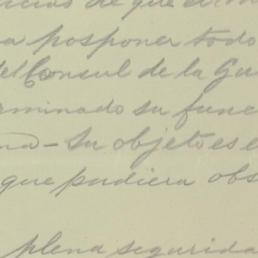 icias de que el m
a posponer todo
del Consul de la Gu
erminado su func
na - Su objeto es e
que pudiera obs
plena segurida